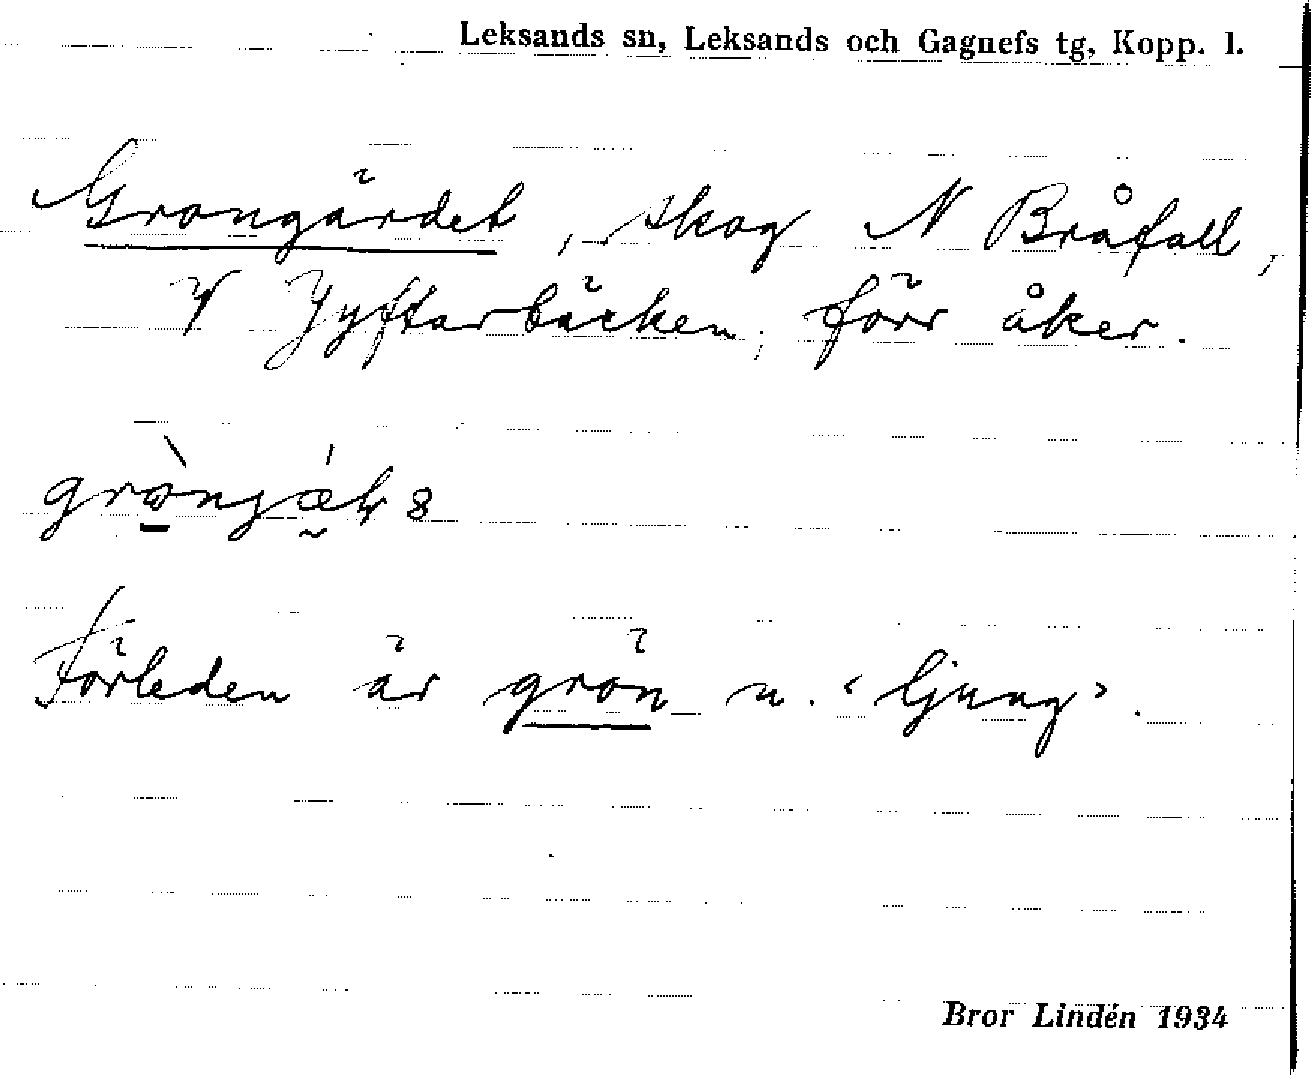 Leksands sn, Leksands och Gagnefs tg, Kopp. l.
Grongärdet, skog N Bråfall,
V Jyftarbäcken; förr åker.
Förleden är grön n. ‹ljung›.
Bror Lindén 1934